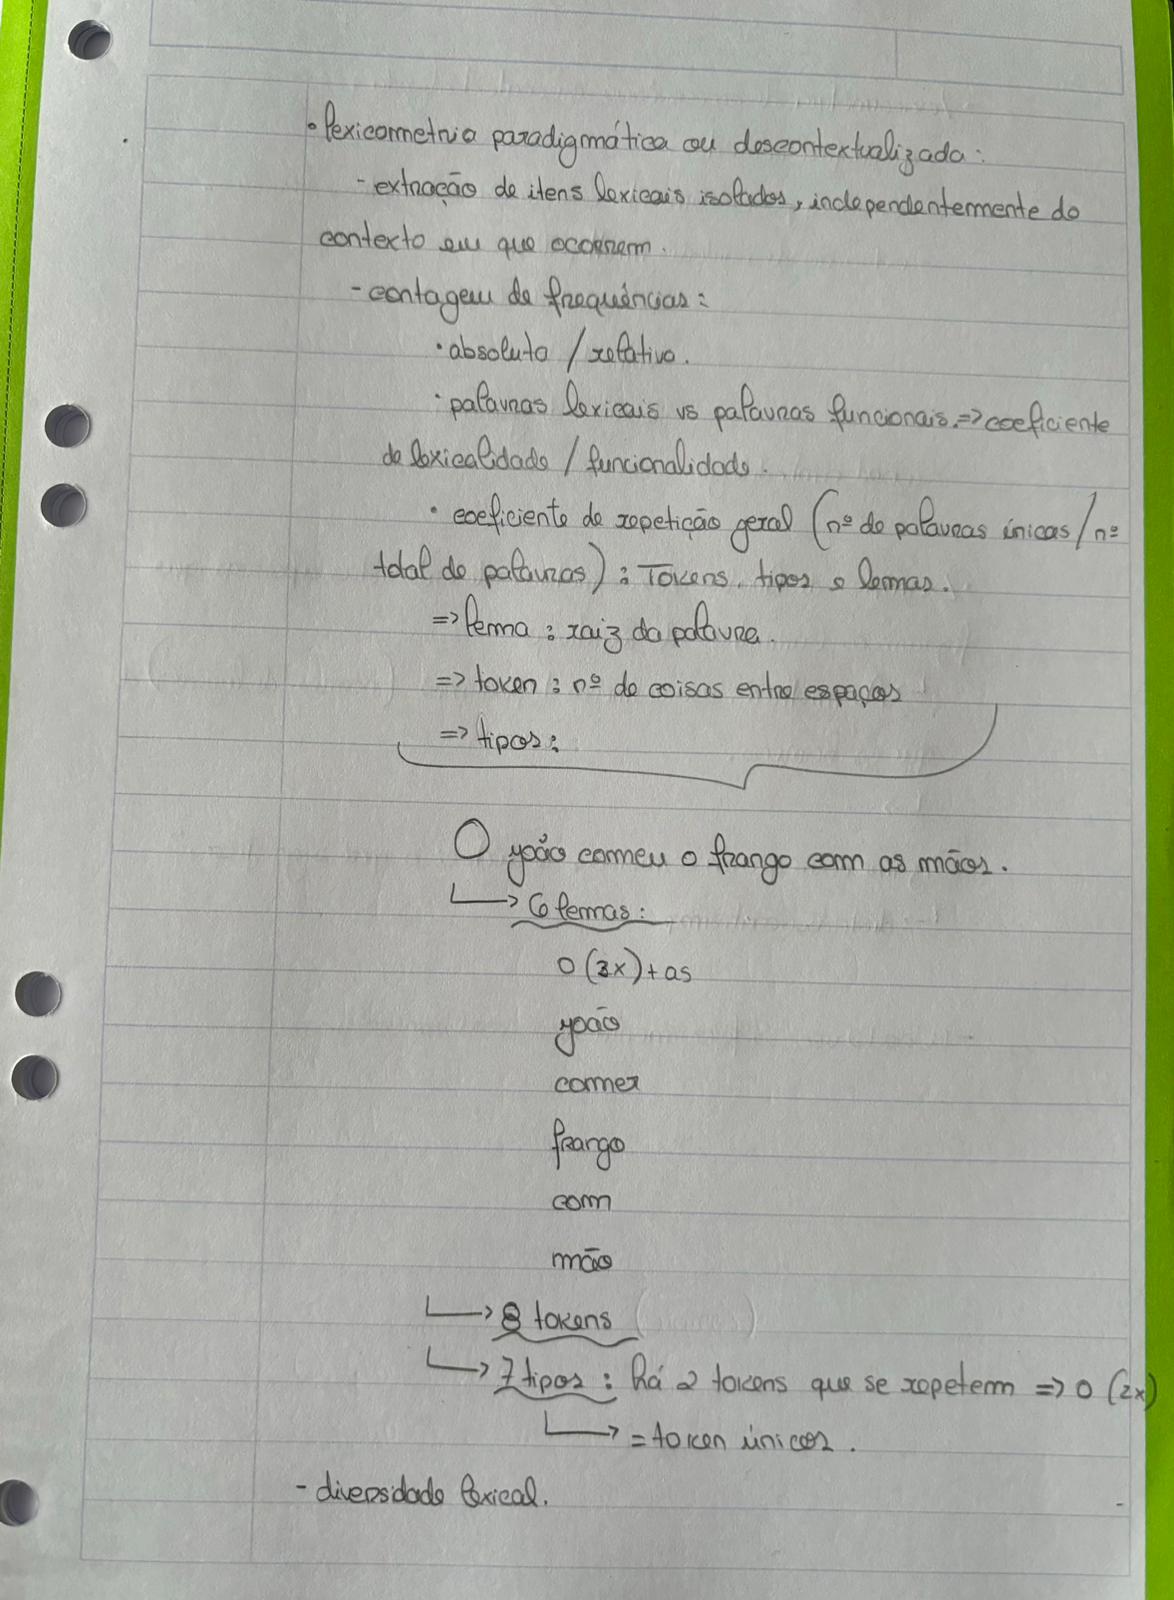 • lexicometria paradigmática ou descontextualizada:
- extração de itens lexicais isolados, independentemente do
contexto em que ocorrem.
- contagem de frequências:
• absoluta / relativa.
• palavras lexicais vs palavras funcionais. => coeficiente
de lexicalidade / funcionalidade.
• coeficiente de repetição geral (nº de palavras únicas / nº
total de palavras) : Tokens, tipos e lemas.
=> lema : raiz da palavra.
=> token : nº de coisas entre espaços
=> tipos :
O João comeu o frango com as mãos.
→ 6 lemas :
o (2x) + as
João
comer
frango
com
mão
→ 8 tokens
→ 7 tipos : há 2 tokens que se repetem => o (2x)
→ = token únicos.
- diversidade lexical.